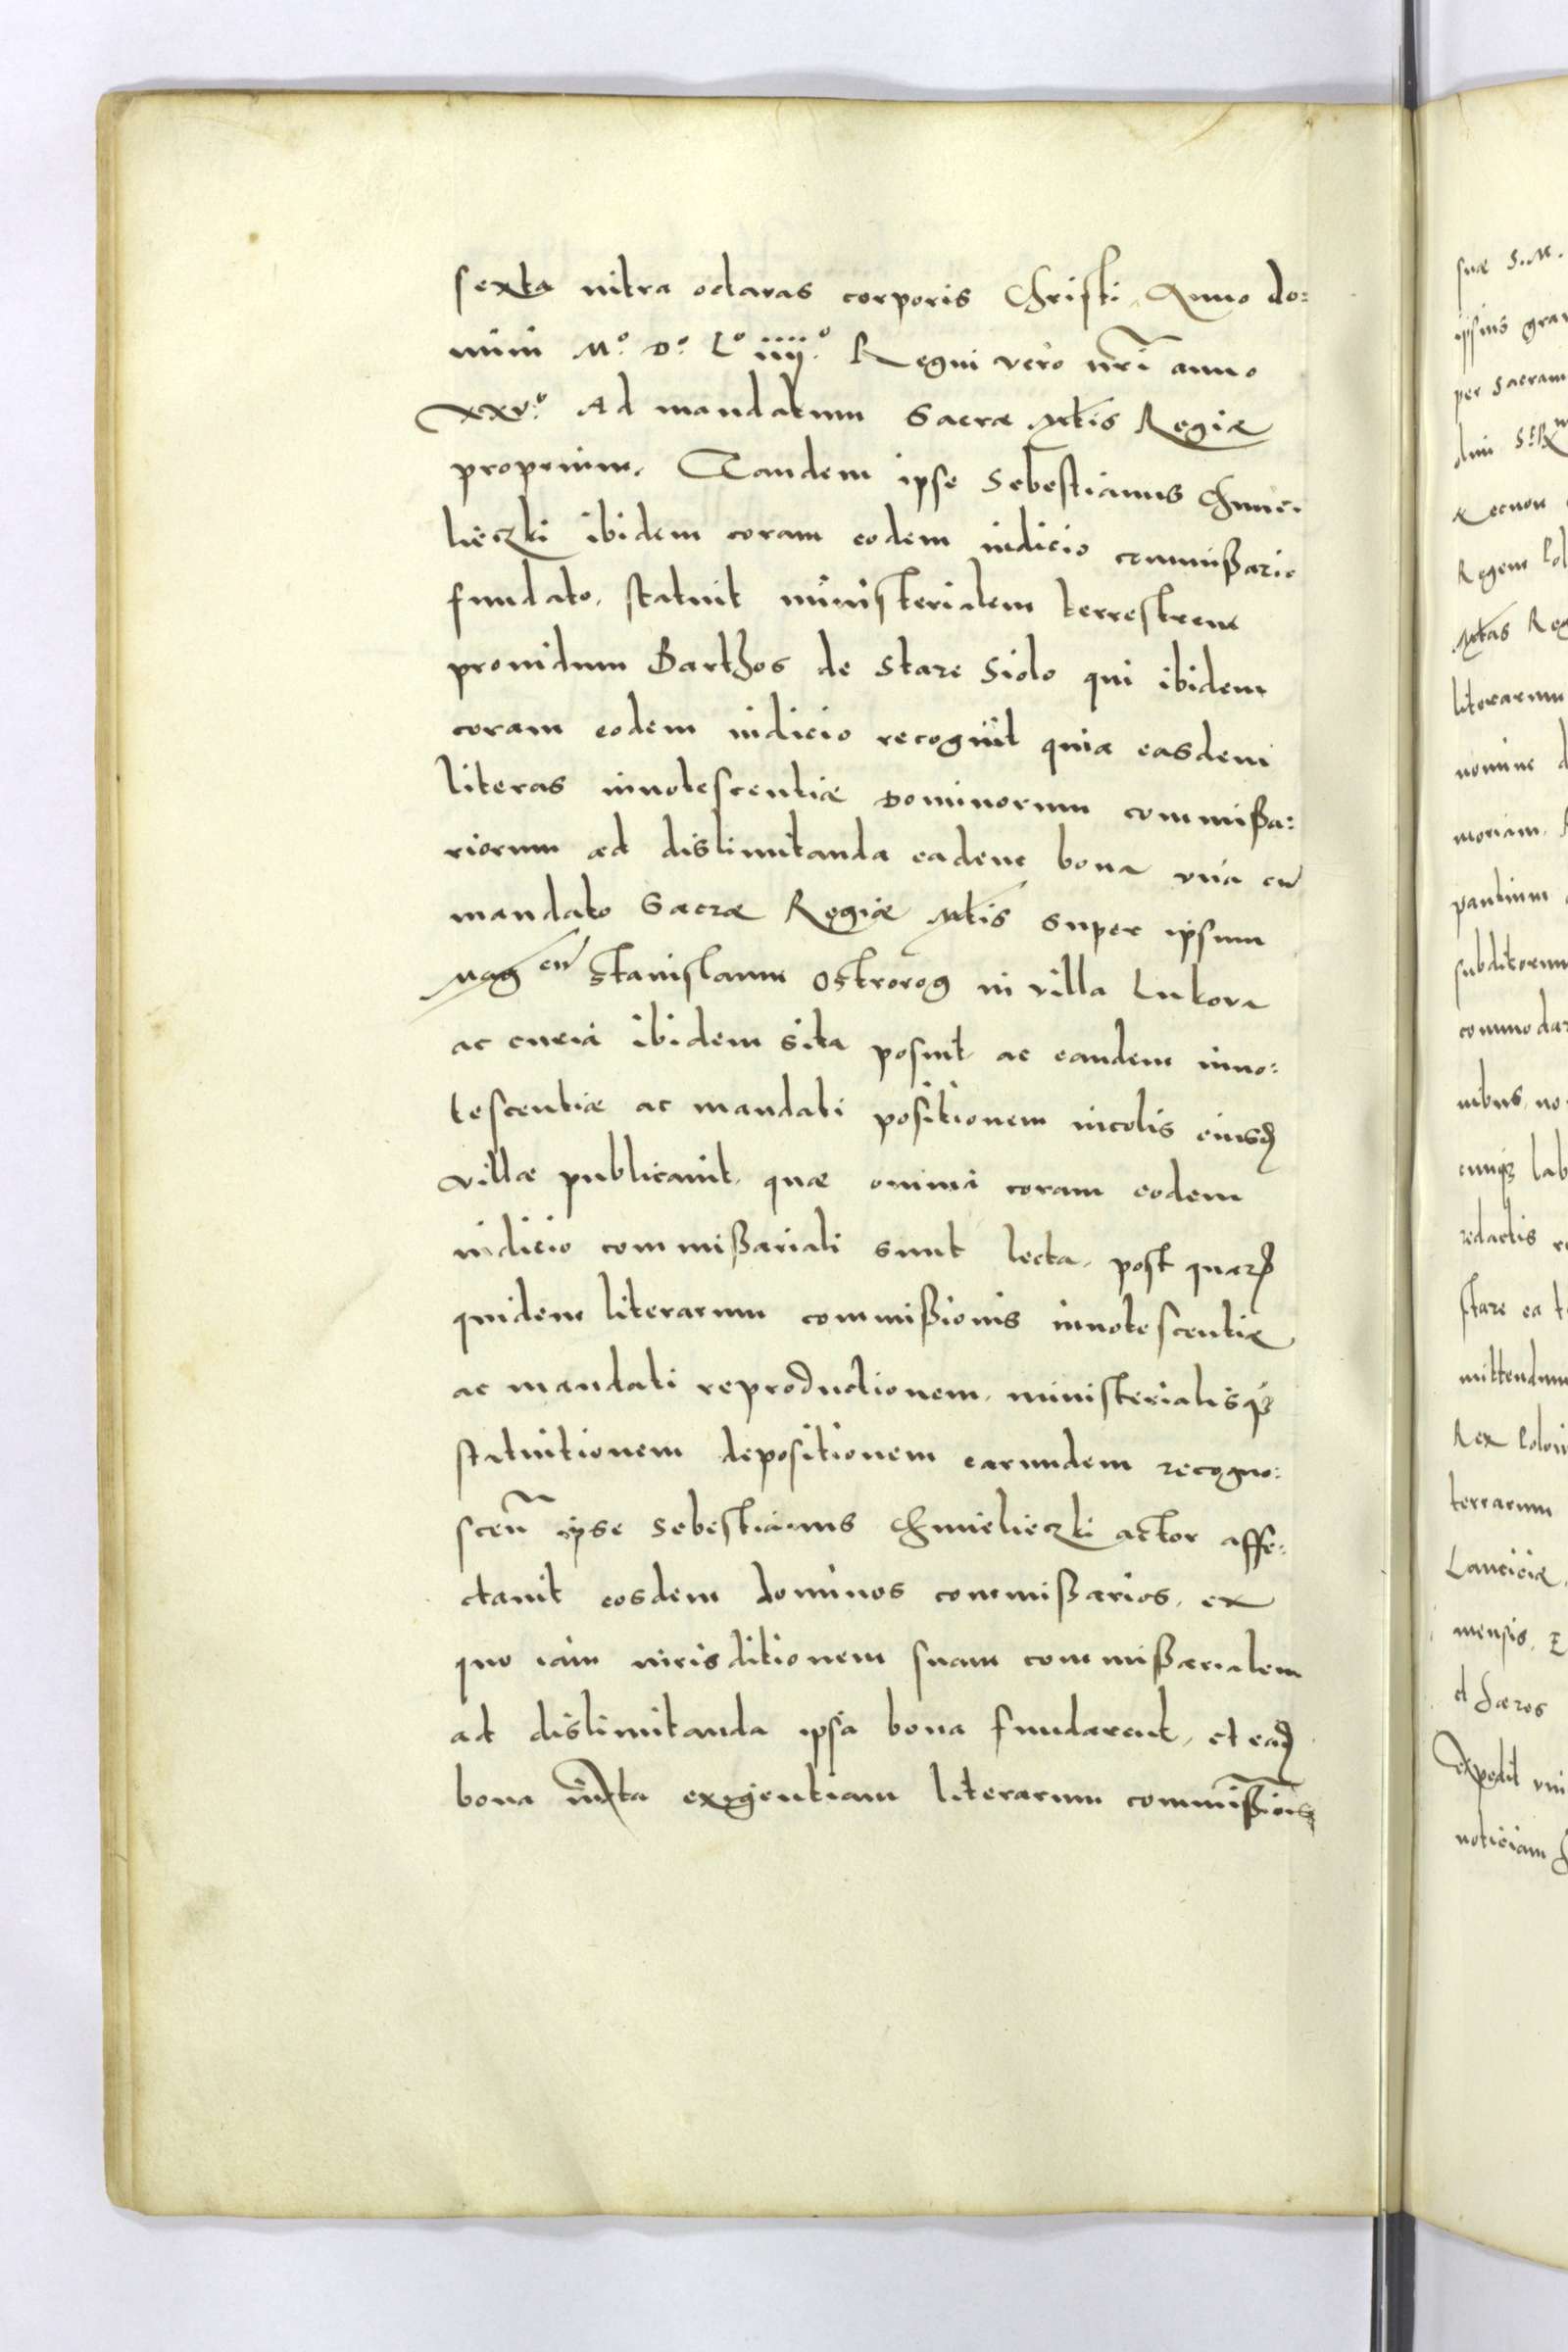 sexta intra octavas corporis Christi, Anno do:
mini M.º D.º L.º iiij.º Regni vero nrĩ anno
xxv.º Ad mandatum Sacræ Mtis Regiæ
proprium. Tandem ipse Sebestianus Chmie-
lieczki ibidem coram eodem iudicio commißario
fundato, statuit ministerialem terrestrem
prouidum Barthos de Stare Siolo qui ibidem
coram eodem iudicio recognit quia easdem
literas innotescentiæ Dominorum commißa:
riorum ad dislimitanda eadem bona vna cũ
mandato Sacræ Regiæ Mtis super ipsum
Mag cũ Stanislaum Ostrorog in villa Lukova
ac curia ibidem sita posuit, ac eandem inno:
tescentiæ ac mandati positionem incolis eiusd
villæ publicauit, quæ omnia coram eodem
iudicio commißariali sunt lecta, post quarū
quidem literarum commißionis innotescentiæ
ac mandati reproductionem, ministerialisqȝ
statuitionem depositionem earumdem recogno:
sceñ ipse Sebestianus Chmielieczki actor affe:
ctauit eosdem dominos commißarios, ex
quo iam iurisditionem suam commißarialem
ad dislimitanda ipsa bona fundarent, et ead
bona iuxta exigentiam literarum commißionis
suæ S. M.
ipsius gra
per Sacram
Regem Pol
Mtas Reg
literarum
nomine d
moriam.
pantium
subditorum
commoda
nibus, no
cumqȝ lab
redactis re
stare ea t
mittendum
Rex Poloni
terrarum
Lanciciæ
mensis. E
et Hæres
Expedit vni
noticiam